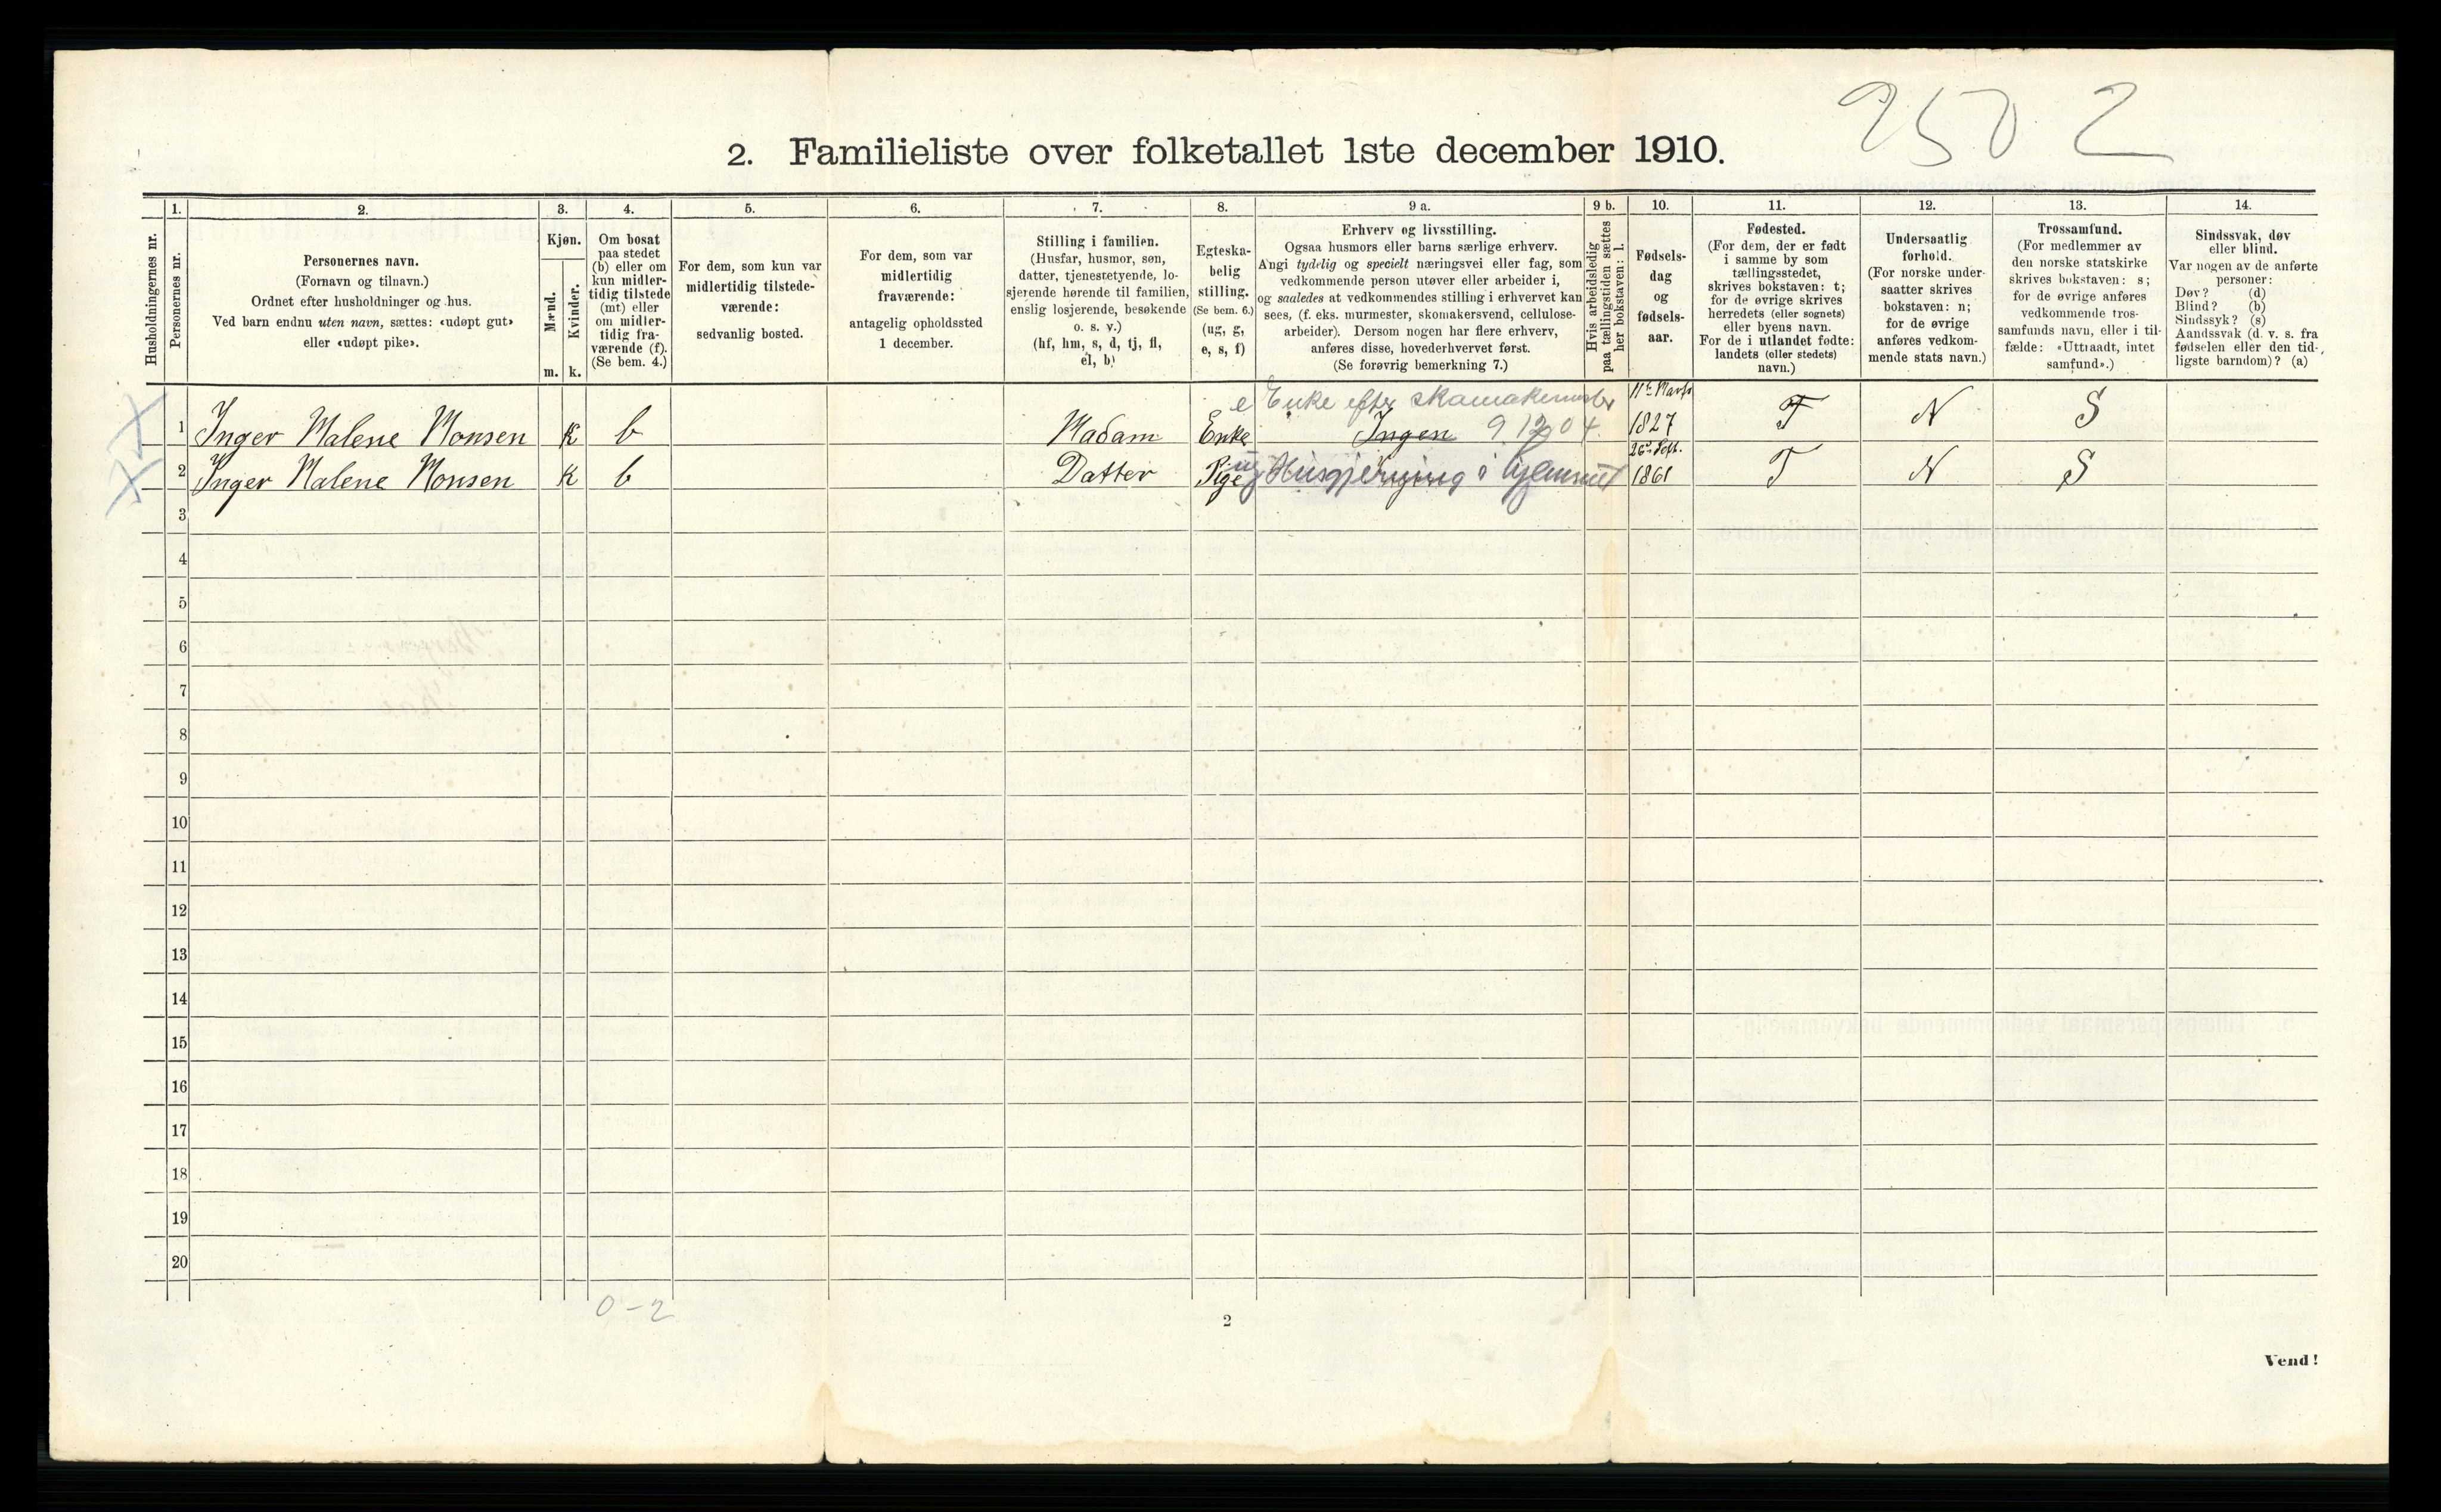 2502
2. Familieliste over folketallet 1ste december 1910.
Husholdningernes nr.
1.
Personernes nr.
2.
Personernes navn.
(Fornavn og tilnavn.)
Ordnet efter husholdninger og hus.
Ved barn endnu uten navn, sættes: «udøpt gut»
eller «udøpt pike».
3.
Kjøn.
Mænd.
Kvinder.
m. k.
4.
Om bosat
paa stedet
(b) eller om
kun midler-
tidig tilstede
(mt) eller
om midler-
tidig fra-
værende (f).
(Se bem. 4.)
5.
For dem, som kun var
midlertidig tilstede-
værende:
sedvanlig bosted.
6.
For dem, som var
midlertidig
fraværende:
antagelig opholdssted
1 december.
7.
Stilling i familien.
(Husfar, husmor, søn,
datter, tjenestetyende, lo-
sjerende hørende til familien,
enslig losjerende, besøkende
o. s. v.)
(hf, hm, s, d, tj, fl,
el, b)
8.
Egteska-
belig
stilling.
(Se bem. 6.)
(ug, g,
e, s, f)
9 a.
Erhverv og livsstilling.
Ogsaa husmors eller barns særlige erhverv.
Angi tydelig og specielt næringsvei eller fag, som
vedkommende person utøver eller arbeider i,
og saaledes at vedkommendes stilling i erhvervet kan
sees, (f. eks. murmester, skomakersvend, cellulose-
arbeider). Dersom nogen har flere erhverv,
anføres disse, hovederhvervet først.
(Se forøvrig bemerkning 7.)
9 b.
Hvis arbeidsledig
paa tællingstiden sættes
her bokstaven: l.
10.
Fødsels-
dag
og
fødsels-
aar.
11.
Fødested.
(For dem, der er født
i samme by som
tællingsstedet,
skrives bokstaven: t;
for de øvrige skrives
herredets (eller sognets)
eller byens navn.
For de i utlandet fødte:
landets (eller stedets)
navn.)
12.
Undersaatlig
forhold.
(For norske under-
saatter skrives
bokstaven: n;
for de øvrige
anføres vedkom-
mende stats navn.)
13.
Trossamfund.
(For medlemmer av
den norske statskirke
skrives bokstaven: s;
for de øvrige anføres
vedkommende tros-
samfunds navn, eller i til-
fælde: «Uttraadt, intet
samfund».)
14.
Sindssvak, døv
eller blind.
Var nogen av de anførte
personer:
Døv? (d)
Blind? (b)
Sindssyk? (s)
Aandssvak (d. v. s. fra
fødselen eller den tid-
ligste barndom)? (a)
e Enke efter skomakermester 11te Marts
1 Inger Malene Monsen K b Madam Enke Ingen 1827 T N S
2 Inger Malene Monsen K b Datter Pige ug Husgjerning i hjemmet 26de Sept. 1861 T N S
3
4
5
6
7
8
9
10
11
12
13
14
15
16
17
18
19
20
0-2
2
Vend!